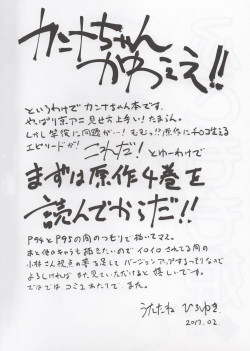 カンナちゃん
かわええ!!
というわけでカンナちゃん本です。
やっぱり京アニ見せ方上手い!たまらん。
しかし笑顔に問題がー!むむっ?原作にチョロ甘える
エピソードが!これだ!とゆーわけで
まずは原作4巻を
読んでからだ!!
P94とP95の間のつもりで描いてマス。
あと他のキャラも描きたいのでイロイロされてる間の
小林さん視点の夢を足してバージョンアップするつもりなので
よろしければまた見ていただけると嬉しいです。
ではではコミュあたりで。また。
うたたねひろゆき
2017.02.